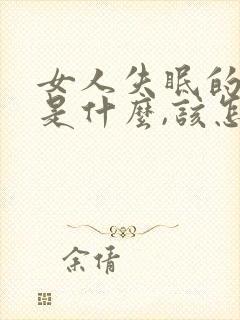 女人失眠的
是什麼,該怎
余倩